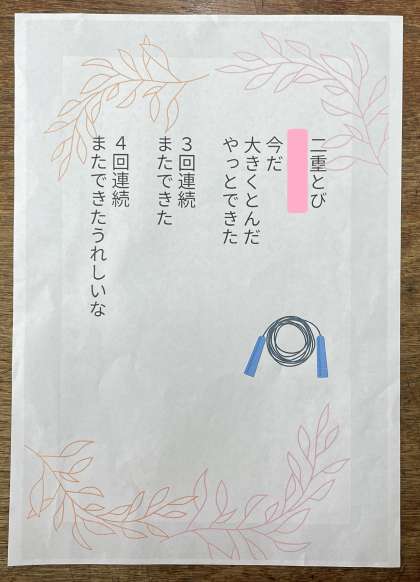 二重とび
今だ
大きくとんだ
やっとできた
３回連続
またできた
４回連続
またできたうれしいな